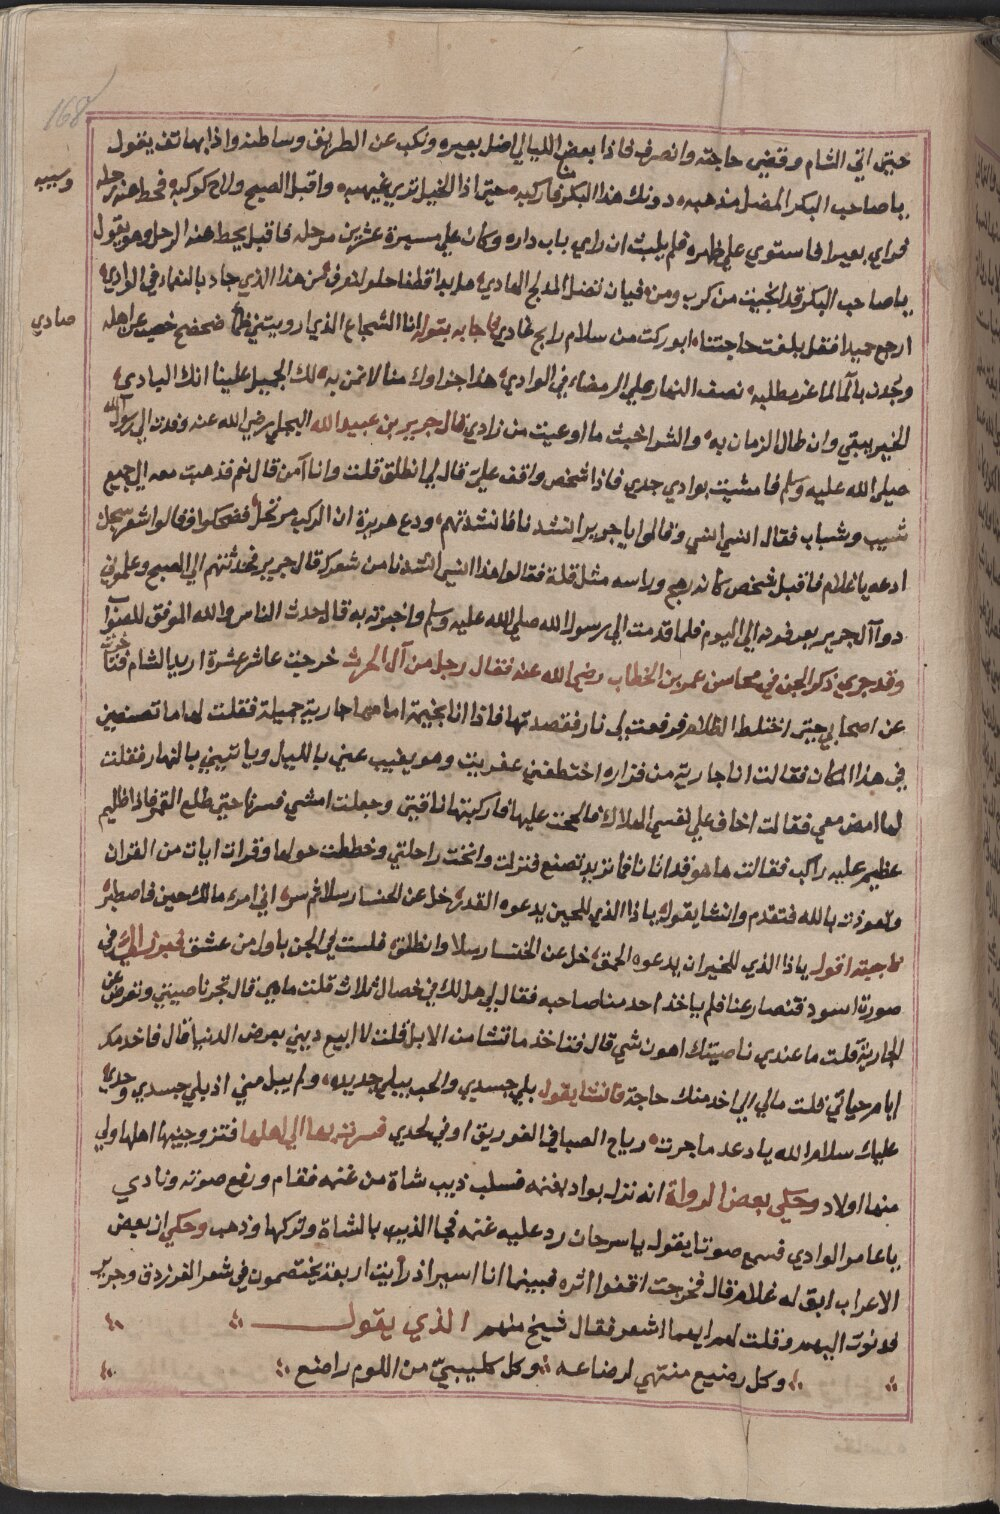 168
حتى اتى الشام وقضى حاجته وانصرف فاذا بعض الليالي اضل بعيره ونكب عن الطريق وساطنه واذا بهاتف يقول
ياصاحب البكر المضل مذهبه دونك هذا البكر منا فاركبه حتى اذا الخيل تري غيهبه واقبل الصبح ولاح كوكبه فحط عنه رحله
وسيبه
فراي بعيرا فاستوي علي ظهره فلم يلبث ان راي باب داره وكان علي مسيرة عشرين مرحله فاقبل يحط عنه الرحل وهو يقول
ياصاحب البكر قد انجيت من كرب ومن فيافي تضل المدلج الهادي هلا بدا قطفا حلو لنعرف من هذا الذي جاد بالنعماء في الوادي
ارجع حميدا فقد بلغت حاجتنا بوركت من سلام رايح غادي فاجابه بقوله انا الشجاع الذي ارويتني ظمأ ضحضح خصيب عن اهله
صادي
وجدت بالما لما عز مطلبه نصف النهار علي الرمضاء في الوادي هذا جزاوك منا لا نمن به لك الجميل علينا انك البادي
الخير يبقي وان طال الزمان به والشر اخبث ما اوعيت من زادي قال جرير بن عبيد الله البجلي رضي الله عنه وفدت الي رسول الله
صلي الله عليه وسلم فامشيت بوادي جدي فاذا شخص واقف علي قال لي انطلق قلت وانا آمن قال نعم فذهبت معه الي جميع
شيب وشباب فقال انسي انسي وقالوا ياجرير انشدنا فانشدتهم ودع هريرة ان الركب مرتحل فضحكوا وقالوا شعر مسحل
ادعه ياغلام فاقبل شخص كانه رمح وراسه مثل قلة فقالوا هذا انسي انشدنا من شعرك قال جرير فحدثتهم الي الصبح وعلموني
دوا آل جرير يعرفونه الي اليوم فلما قدمت الي رسول الله صلي الله عليه وسلم واخبرته به قال حدث الناس والله الموفق للصواب
وقد جري ذكر الجن في محاسن عمر بن الخطاب رضي الله عنه فقال رجل من آل الحرث خرجت عاشر عشرة اريد الشام فتاخرت
عن اصحابي حتى اختلط الظلام فرفعت لي نار فقصدتها فاذا انا بخيمة امامها جارية جميلة فقلت لها ما تصنعين
في هذا المكان فقالت انا جارية من فزاره اختطفني عفريت وهو يغيب عني بالليل وياتيني بالنهار فقلت
لها امض معي فقالت اخاف علي نفسي الهلاك فالححت عليها فاركبتها ناقتي وجعلت امشي فسرنا حتى طلع القمر فاذا ظليم
عظيم عليه راكب فقالت ها هو قد اتانا فما تريد تصنع فنزلت وانخت راحلتي وخططت حولها وقرات ايات من القران
وتعوذت بالله فتقدم وانشا يقول ياذا الذي للحين يدعوه القدر خل عن الحسنا رسلا ثم سر اني امرء مالك حين فاصطبر
فاجبته اقول ياذا الذي للخيران يدعوه الحمق خل عن الخنسا رسلا وانطلق فلست في الجن باول من عشق فبرز الي في
صورة اسود فتصارعنا فلم ياخذ احد منا صاحبه فقال لي هل لك في خصال ثلاث قلت ما هي قال تجز ناصيتي وتعرض عن
الجارية قلت ما عندي ناصيتك اهون شي قال فتاخذ ما تشا من الابل قلت لا ابيع ديني بعرض الدنيا قال فاخدمك
ايام حياتي قلت مالي الي اخدمنك حاجة فانشا يقول بلي جسدي والحب يبلي جديده ولم يبل مني اذ بلي جسدي وجدي
عليك سلام الله يا دعد ما جرت رياح الصبا في الغور يق اوفي لحدي فسرنا بها الي اهلها فتزوجنيها اهلها ولي
منها اولاد وحكي بعض الرواة انه نزل بواد بغنمه فسلب ذيب شاة من غنمه فقام ورفع صوته ونادي
ياعامر الوادي فسمع صوتا يقول ياسرحان رد عليه غنمه فجا الذيب بالشاة وتركها وذهب وحكي ان بعض
الاعراب ابق له غلام قال فخرجت اقفوا اثره فبينما انا اسير اذ رايت اربعة يختصمون في شعر الفرزدق وجرير
فدنوت اليهم وقلت لهم ايهما اشعر فقال شيخ منهم الذي يقول
وكل رضيع منتهي لرضاعه وكل كليبي من اللوم راضع